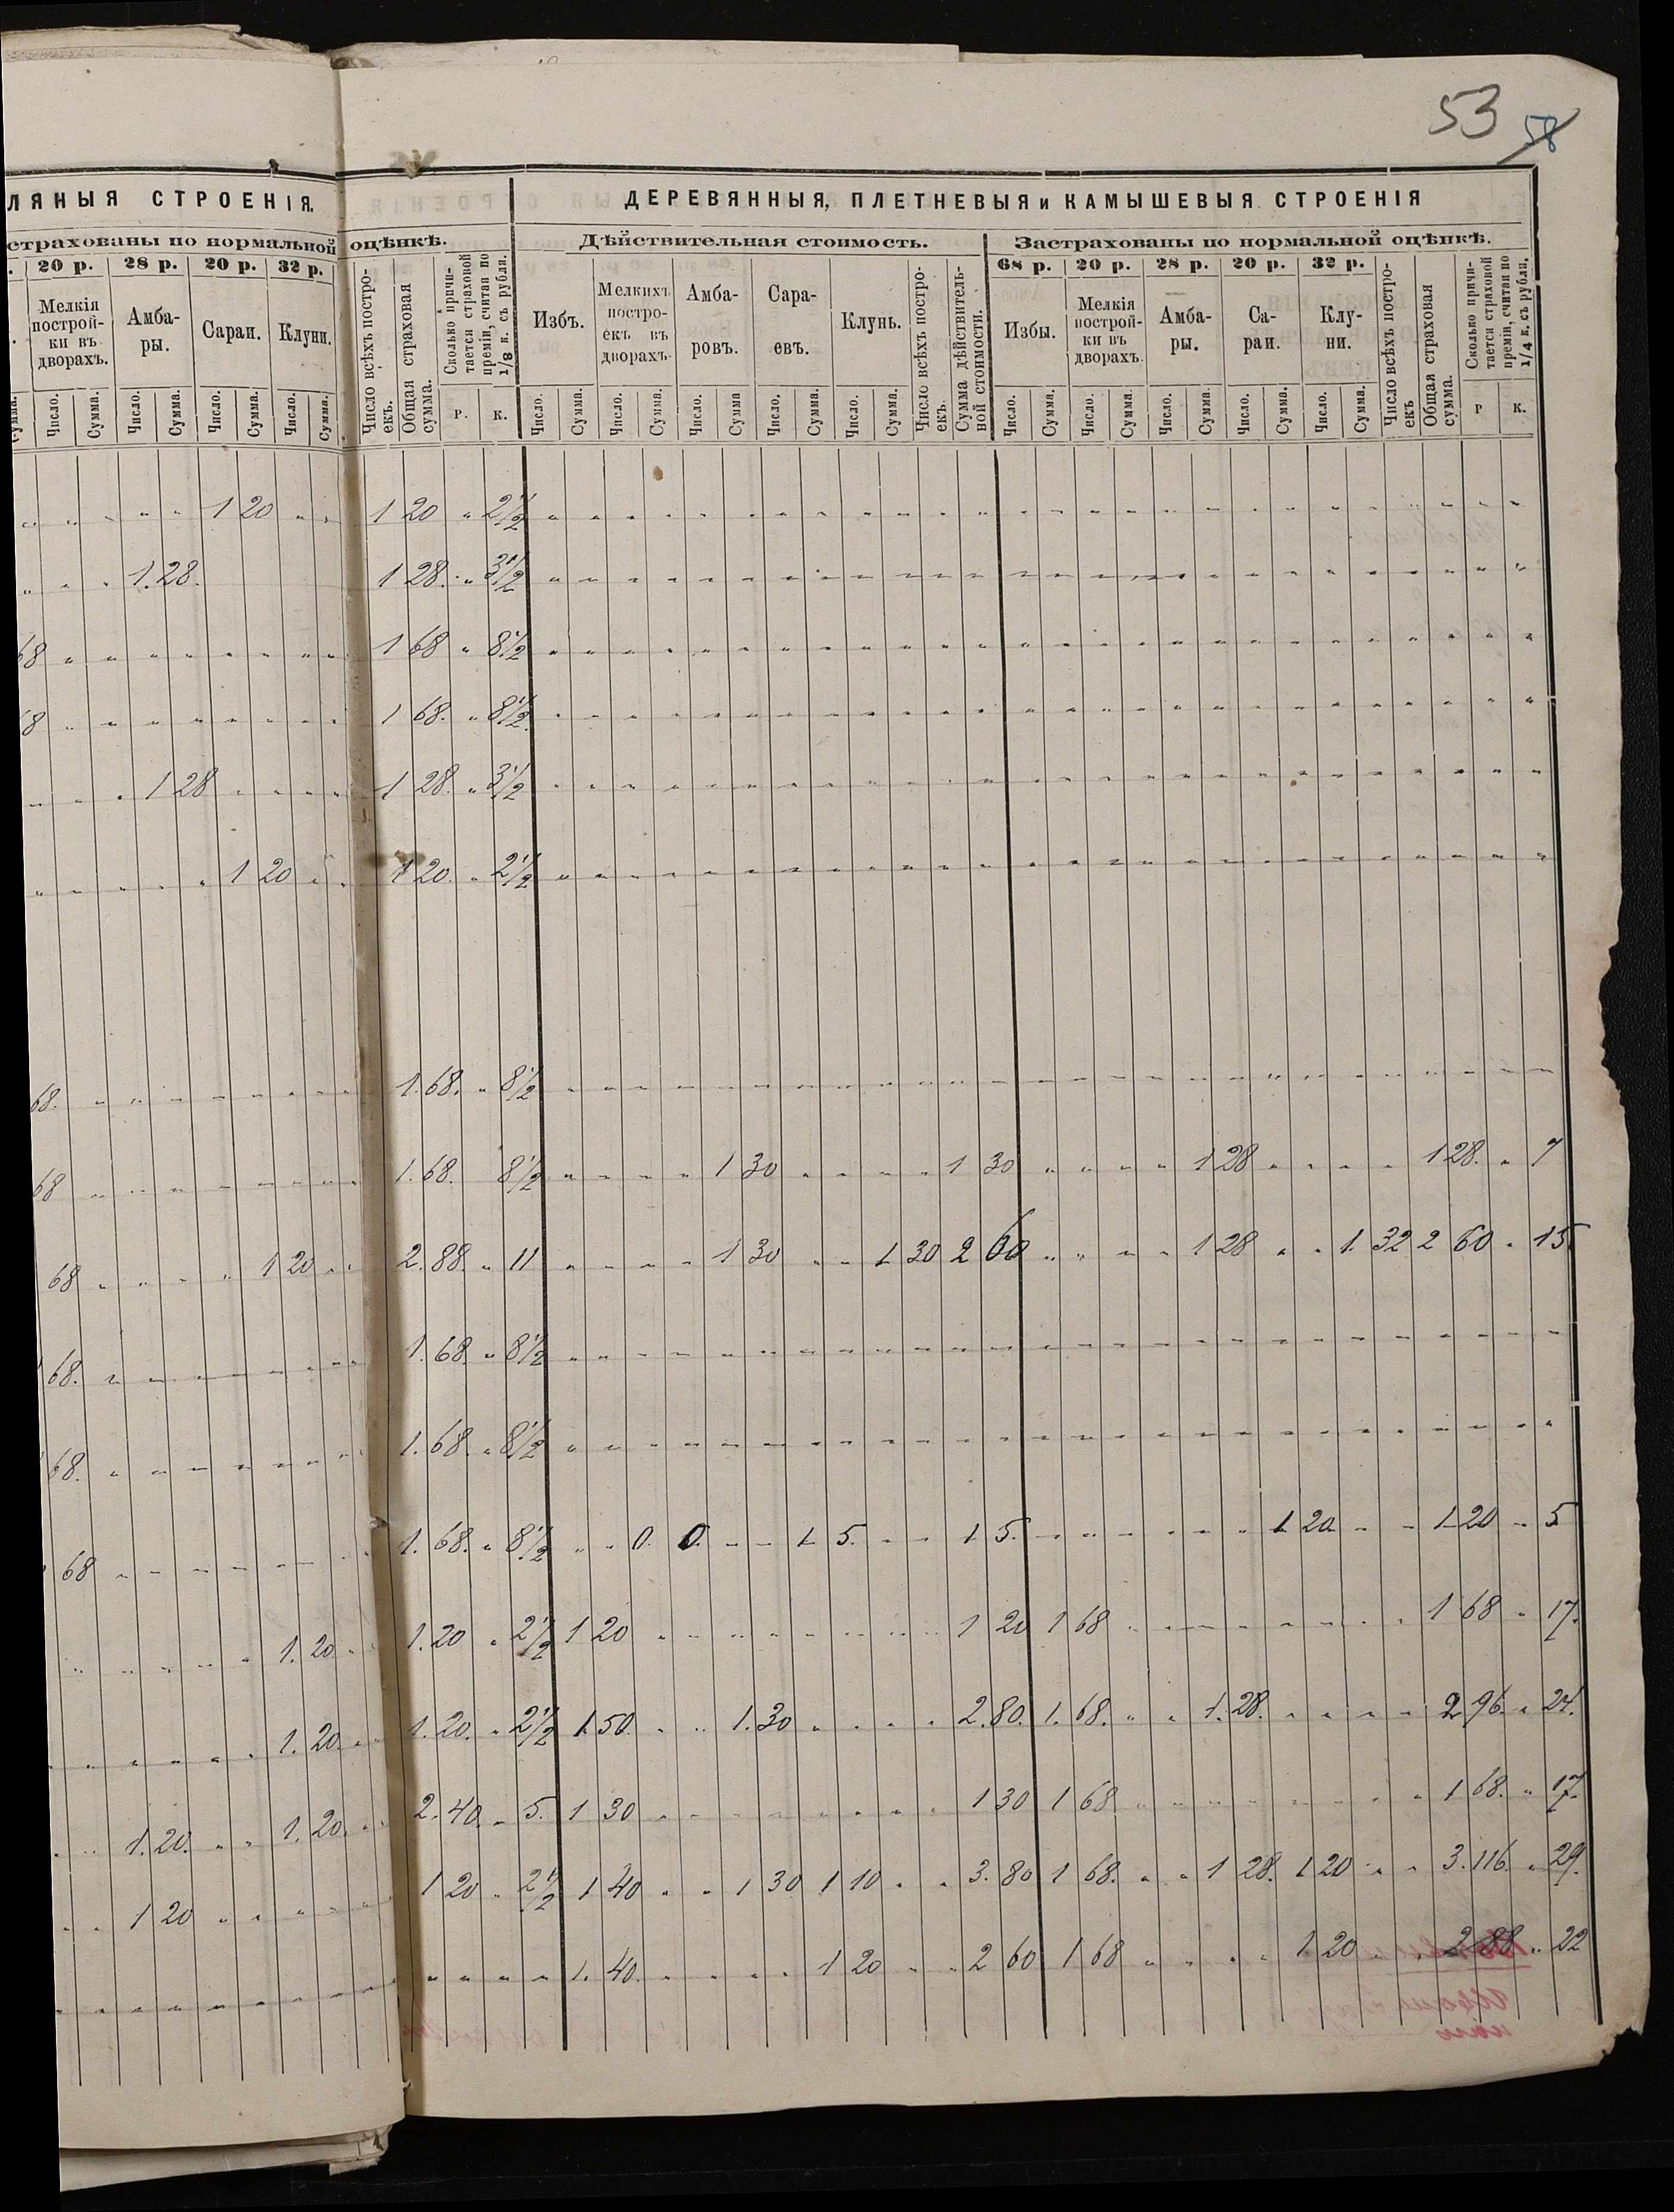 53 58
ЛЯНЫЯ СТРОЕНІЯ.
ДЕРЕВЯННЫЯ, ПЛЕТНЕВЫЯ и КАМЫШЕВЫЯ СТРОЕНІЯ
страхованы по нормальной оцѣнкѣ.
Дѣйствительная стоимость.
Застрахованы по нормальной оцѣнкѣ.
20 р. 28 р. 20 р. 32 р.
68 р. 20 р. 28 р. 20 р. 32 р.
Мелкія построй- ки въ дворахъ.
Амба- ры.
Сараи.
Клуни.
Число всѣхъ постро- екъ.
Общая страховая сумма.
Сколько причи- тается страховой преміи, считая по 1/8 к. съ рубля.
Избъ.
Мелкихъ постро- екъ въ дворахъ.
Амба- ровъ.
Сара- евъ.
Клунь.
Число всѣхъ постро- екъ.
Сумма дѣйствитель- ной стоимости.
Избы.
Мелкія построй- ки въ дворахъ.
Амба- ры.
Са- раи.
Клу- ни.
Число всѣхъ постро- екъ
Общая страховая сумма.
Сколько причи- тается страховой преміи, считая по 1/4 к. съ рубля.
Сумма. Число. Сумма. Число. Сумма. Число. Сумма. Число. Сумма. Р. К. Число. Сумма. Число. Сумма. Число. Сумма Число. Сумма. Число. Сумма. Число. Сумма. Число. Сумма. Число. Сумма. Число. Сумма. Число. Сумма. Р К.
1 20 1 20 " 2 1/2
1. 28. 1 28. " 3 1/2
68 1 68 " 8 1/2
68 1 68. " 8 1/2
1 28 1 28. " 3 1/2
1 20 1 20. " 2 1/2
68. 1. 68. " 8 1/2
68 1. 68. 8 1/2 1 30 1 30 1 28 1 28. " 7
68 1 20 2. 88. " 11 1 30 1 30 2 60 1 28 1. 32 2 60 " 15
68. 1. 68. " 8 1/2
68. 1. 68. " 8 1/2
68 1. 68. " 8 1/2 0. 0. 1 5. 1 5. 1 20 1 20 " 5
1. 20 1. 20 " 2 1/2 1 20 1 20 1 68 1 68 " 17.
1. 20. 1. 20. " 2 1/2 1. 50. 1. 30 2. 80. 1. 68. 1. 28. 2 96. " 24.
1. 20. 1. 20. 2. 40. " 5. 1 30 1 30 1 68 1 68. " 17.
1 20 1 20 " 2 1/2 1 40 1 30 1 10 3. 80 1 68. 1 28. 1 20 3. 116. " 29.
1. 40. 1 20 2 60 1 68 1 20 2 88 " 22